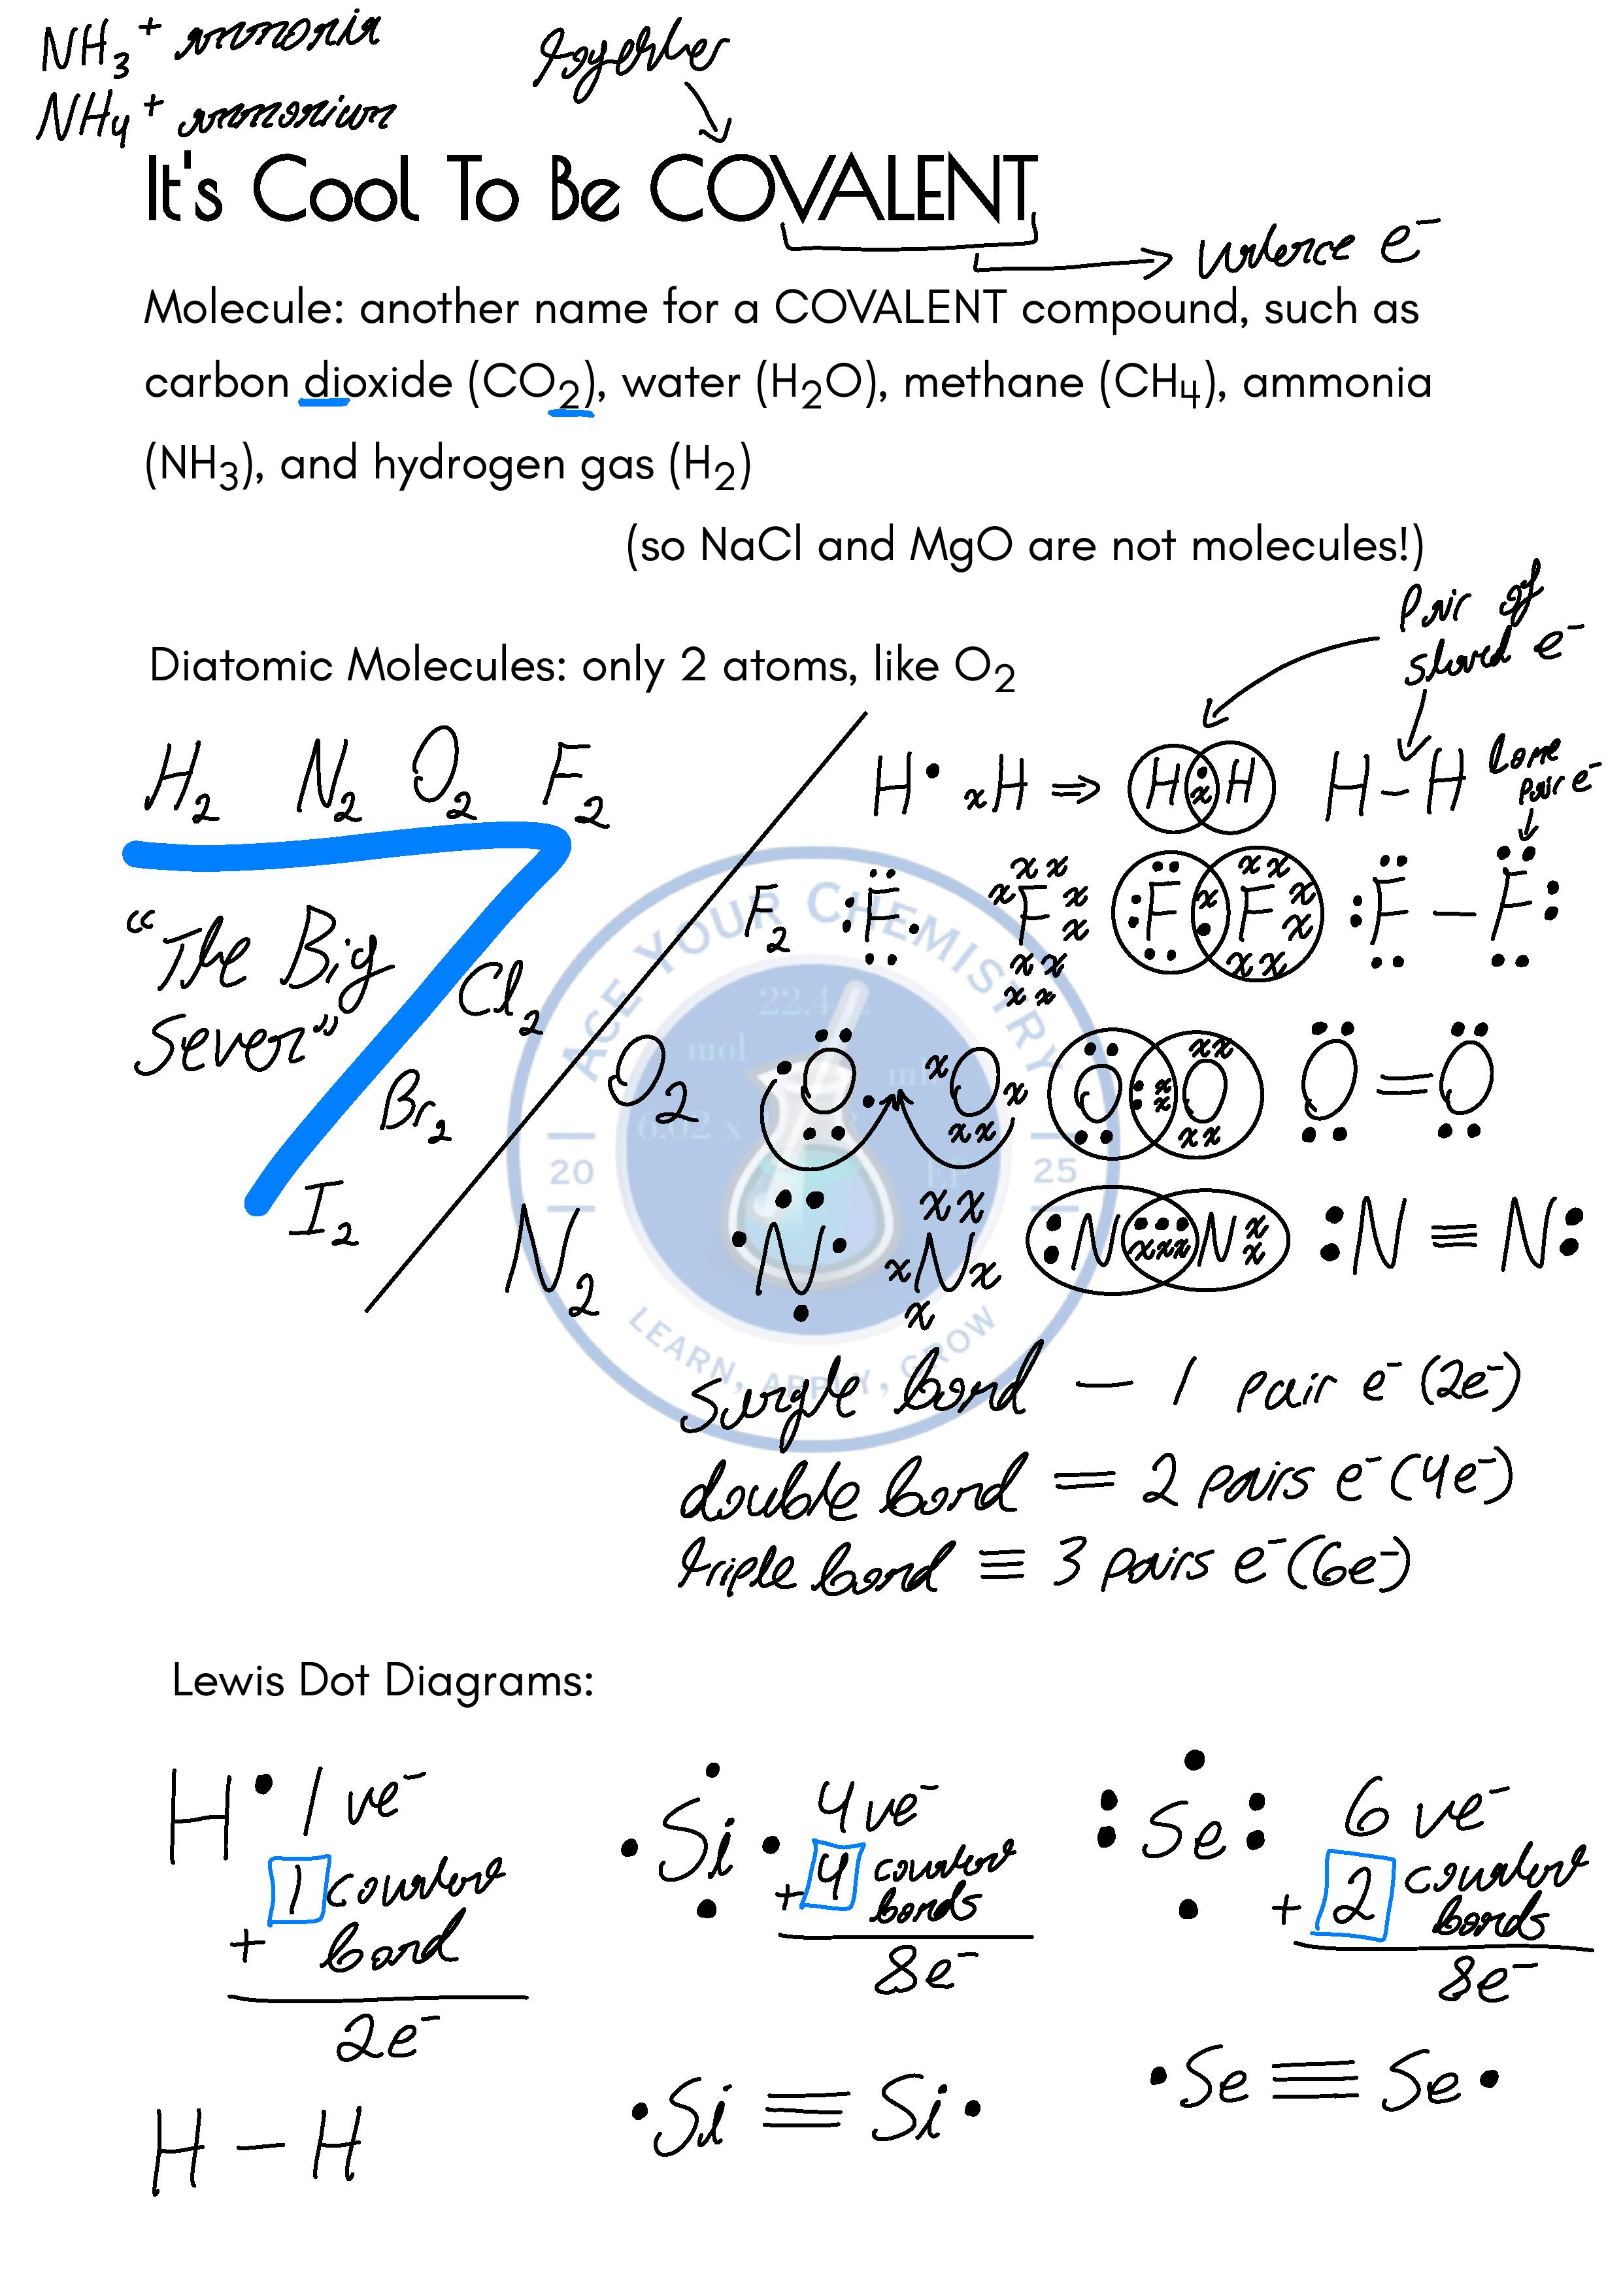 NH₃⁺ ammonia
NH₄⁺ ammonium
together
It's Cool To Be COVALENT
valence e⁻
Molecule: another name for a COVALENT compound, such as
carbon dioxide (CO₂), water (H₂O), methane (CH₄), ammonia
(NH₃), and hydrogen gas (H₂)
(so NaCl and MgO are not molecules!)
Pair of
shared e⁻
Diatomic Molecules: only 2 atoms, like O₂
H₂ N₂ O₂ F₂
"The Big
Seven"
Cl₂
Br₂
I₂
H• xH ⇒ H•xH H–H
Lone
Pair e⁻
F₂ F F F F F–F
O₂ O O O O O=O
N₂ N N N N :N≡N:
ACE YOUR CHEMISTRY
22.4
mol
6.02 x
20 25
LEARN, APPLY, GROW
Single bond — 1 pair e⁻ (2e⁻)
double bond = 2 pairs e⁻ (4e⁻)
triple bond ≡ 3 pairs e⁻ (6e⁻)
Lewis Dot Diagrams:
H• 1 ve⁻
+ 1 covalent
bond
2e⁻
H–H
Si 4 ve⁻
+ 4 covalent
bonds
8e⁻
•Si≡Si•
Se 6 ve⁻
+ 2 covalent
bonds
8e⁻
•Se≡Se•